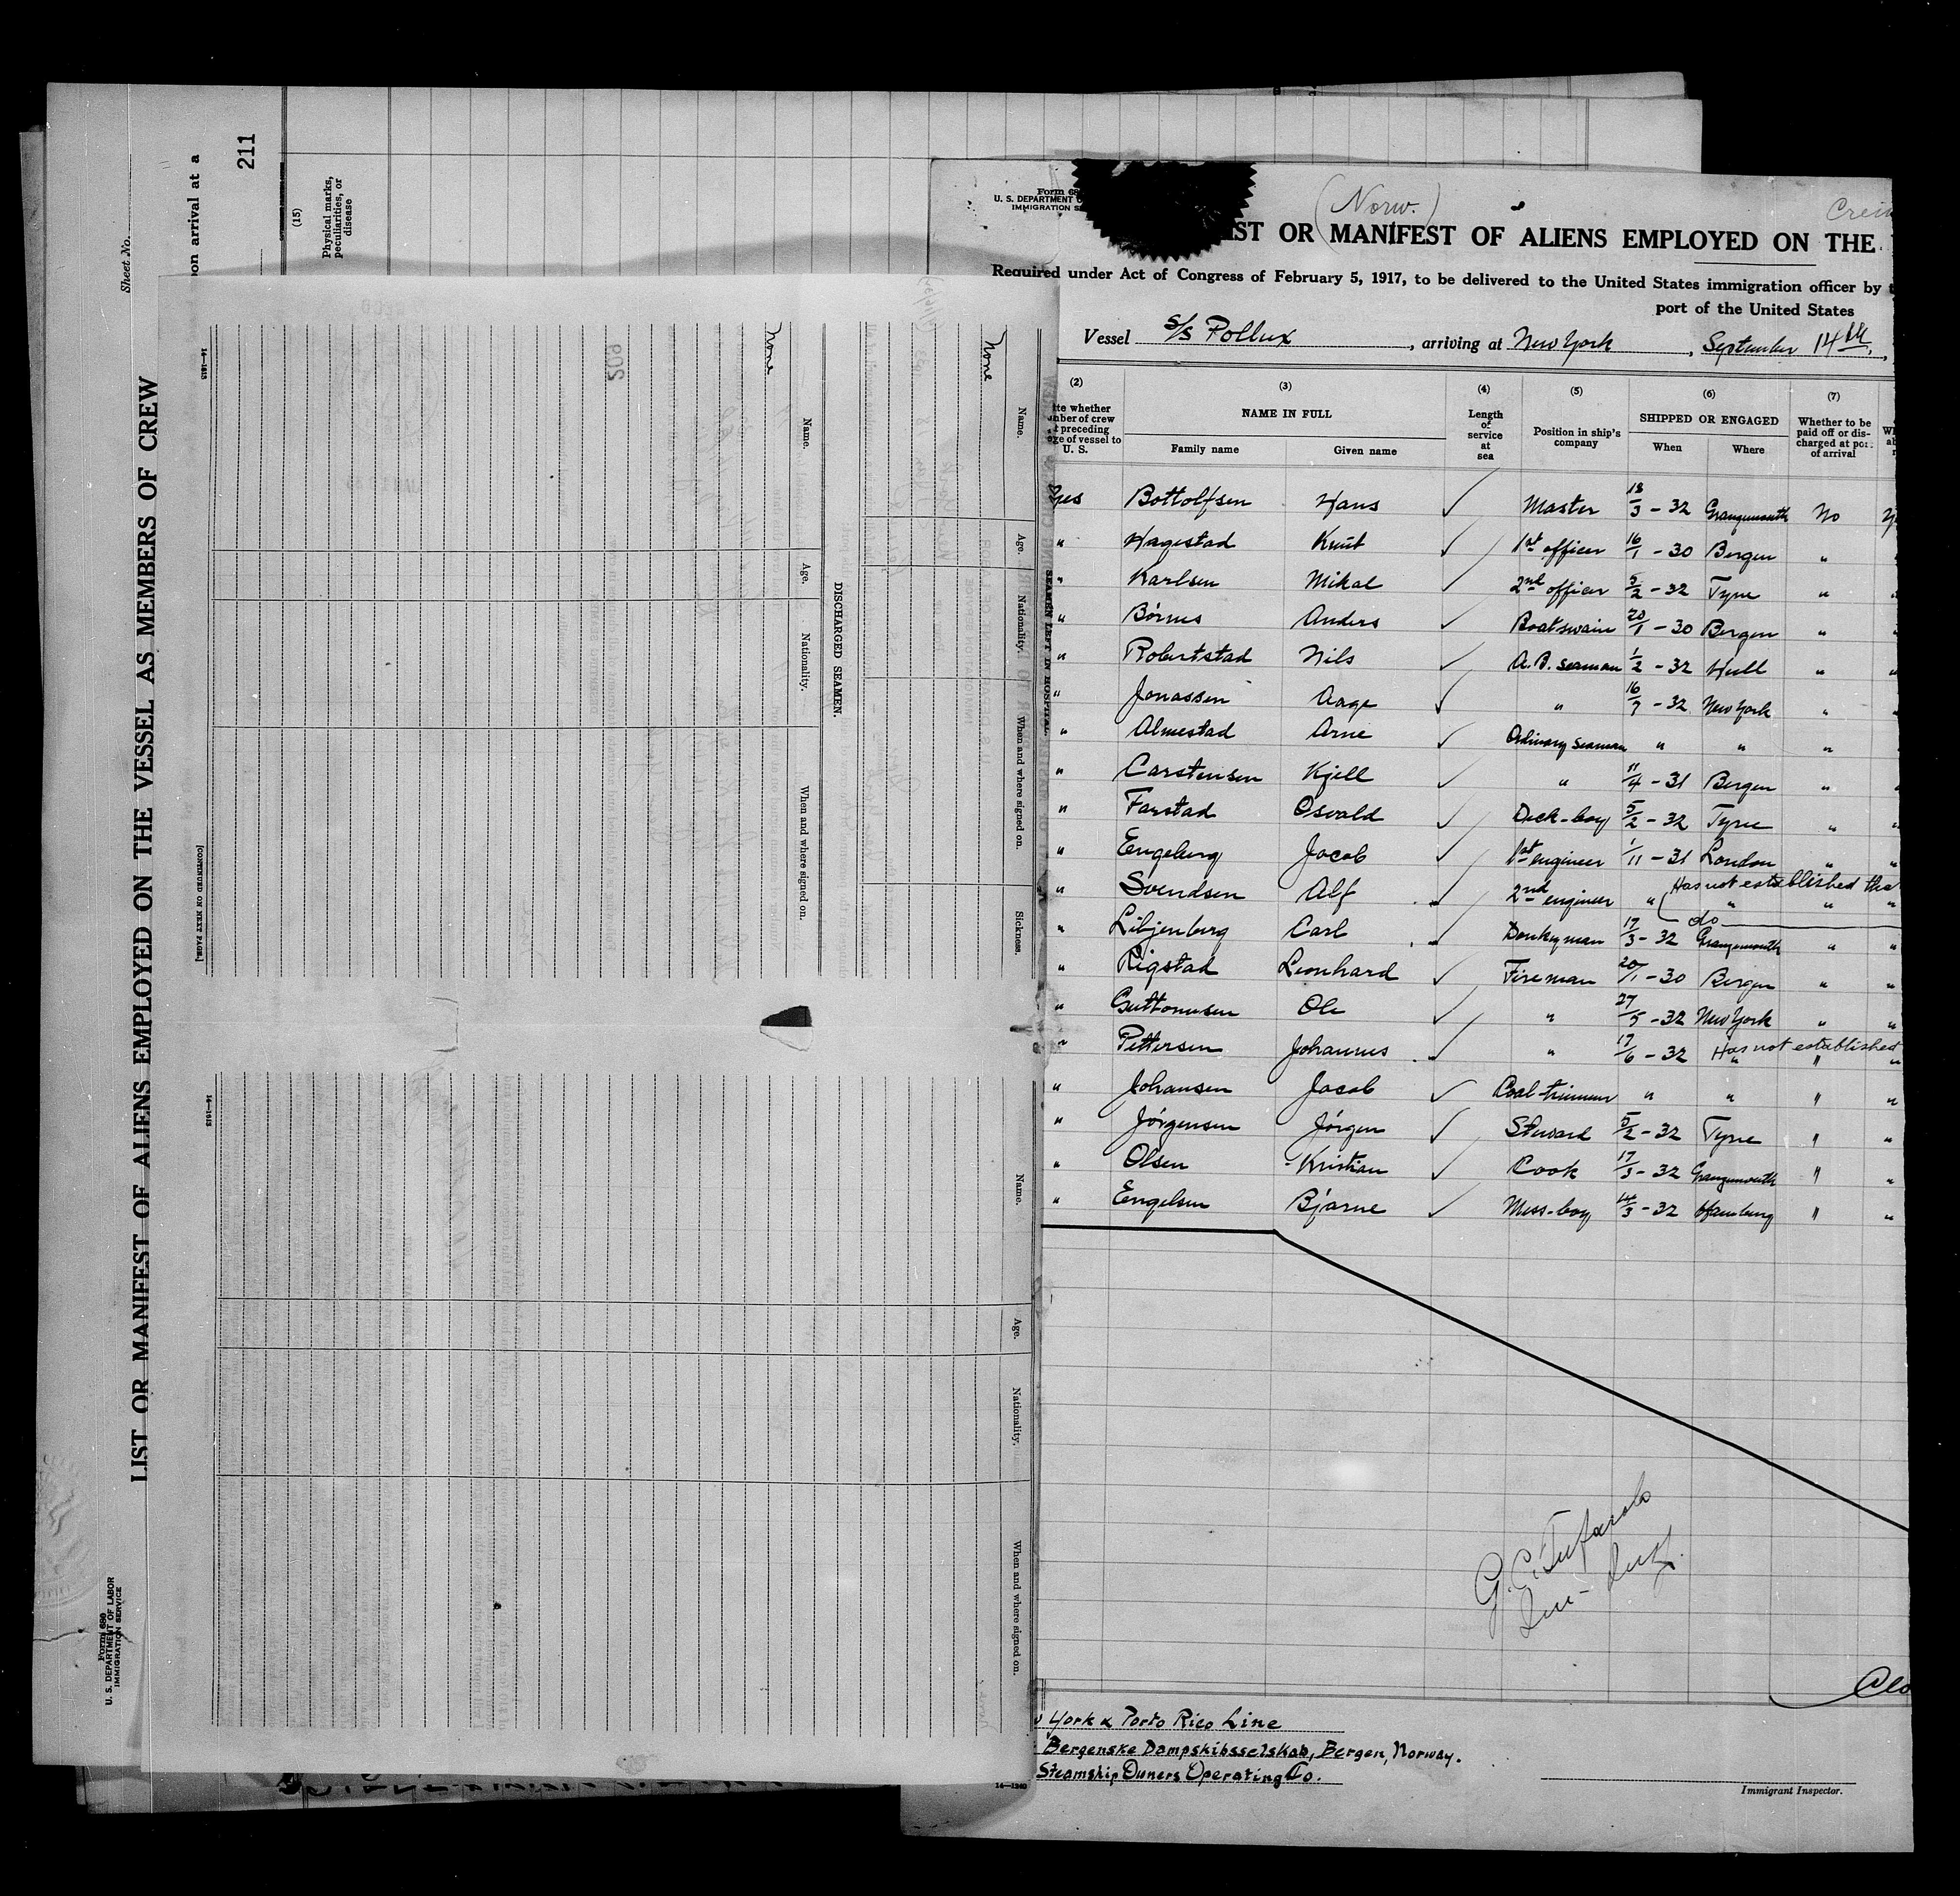 Sheet No.
on arrival at a
211
(15)
Physical marks,
peculiarities, or
disease
LIST OR MANIFEST OF ALIENS EMPLOYED ON THE VESSEL AS MEMBERS OF CREW
Form 680
U. S. DEPARTMENT OF LABOR
IMMIGRATION SERVICE
14—1313
[CONTINUED ON NEXT PAGE.]
None
None
Name.
Age.
Nationality.
When and where signed on.
DISCHARGED SEAMEN.
Name.
Age.
Nationality.
When and where signed on.
Sickness.
SEAMEN LEFT IN HOSPITAL
Name.
Age.
Nationality.
When and where signed on.
14—1240
Form 68
U. S. DEPARTMENT
IMMIGRATION SE
(Norw.)
IST OR MANIFEST OF ALIENS EMPLOYED ON THE
Required under Act of Congress of February 5, 1917, to be delivered to the United States immigration officer by
port of the United States
Vessel S/S Pollux, arriving at New York, September 14th,
(2) (3) (4) (5) (6) (7)
te whether
mber of crew
t preceding
age of vessel to
U. S.
NAME IN FULL
Family name Given name
Length
of
service
at
sea
Position in ship's
company
SHIPPED OR ENGAGED
When Where
Whether to be
paid off or dis-
charged at port
of arrival
Yes Bottolfsen Hans ✓ Master 18/3 - 32 Grangemouth No
" Hagestad Knut ✓ 1st officer 16/1 - 30 Bergen "
" Karlsen Mikal ✓ 2nd officer 5/2 - 32 Tyne "
" Börnes Anders ✓ Boatswain 20/1 - 30 Bergen "
" Robertstad Nils ✓ A.B. seaman 1/2 - 32 Hull "
" Jonassen Aage ✓ " 16/7 - 32 New York "
" Almestad Arne ✓ Ordinary seaman " " "
" Carstensen Kjell ✓ " 11/4 - 31 Bergen "
" Farstad Osvald ✓ Deck-boy 5/2 - 32 Tyne "
" Engeberg Jacob ✓ 1st engineer 1/11 - 31 London "
Has not established tha
" Svendsen Alf ✓ 2nd engineer " " " "
do
" Liljenberg Carl ✓ Donkeyman 17/3 - 32 Grangemouth " "
" Rigstad Leonhard ✓ Fireman 20/1 - 30 Bergen " "
" Guttormsen Ole ✓ " 27/5 - 32 New York " "
" Pettersen Johannes ✓ " 17/6 - 32 " " "
Has not established
" Johansen Jacob ✓ Coal-trimmer " " " "
" Jörgensen Jörgen ✓ Steward 5/2 - 32 Tyne " "
" Olsen Kristian ✓ Cook 17/3 - 32 Grangemouth " "
" Engelsen Bjarne ✓ Mess-boy 14/3 - 32 Hamburg " "
York & Porto Rico Line
Bergenske Dampskibsselskab, Bergen, Norway.
Steamship Owners Operating Co.
Immigrant Inspector.